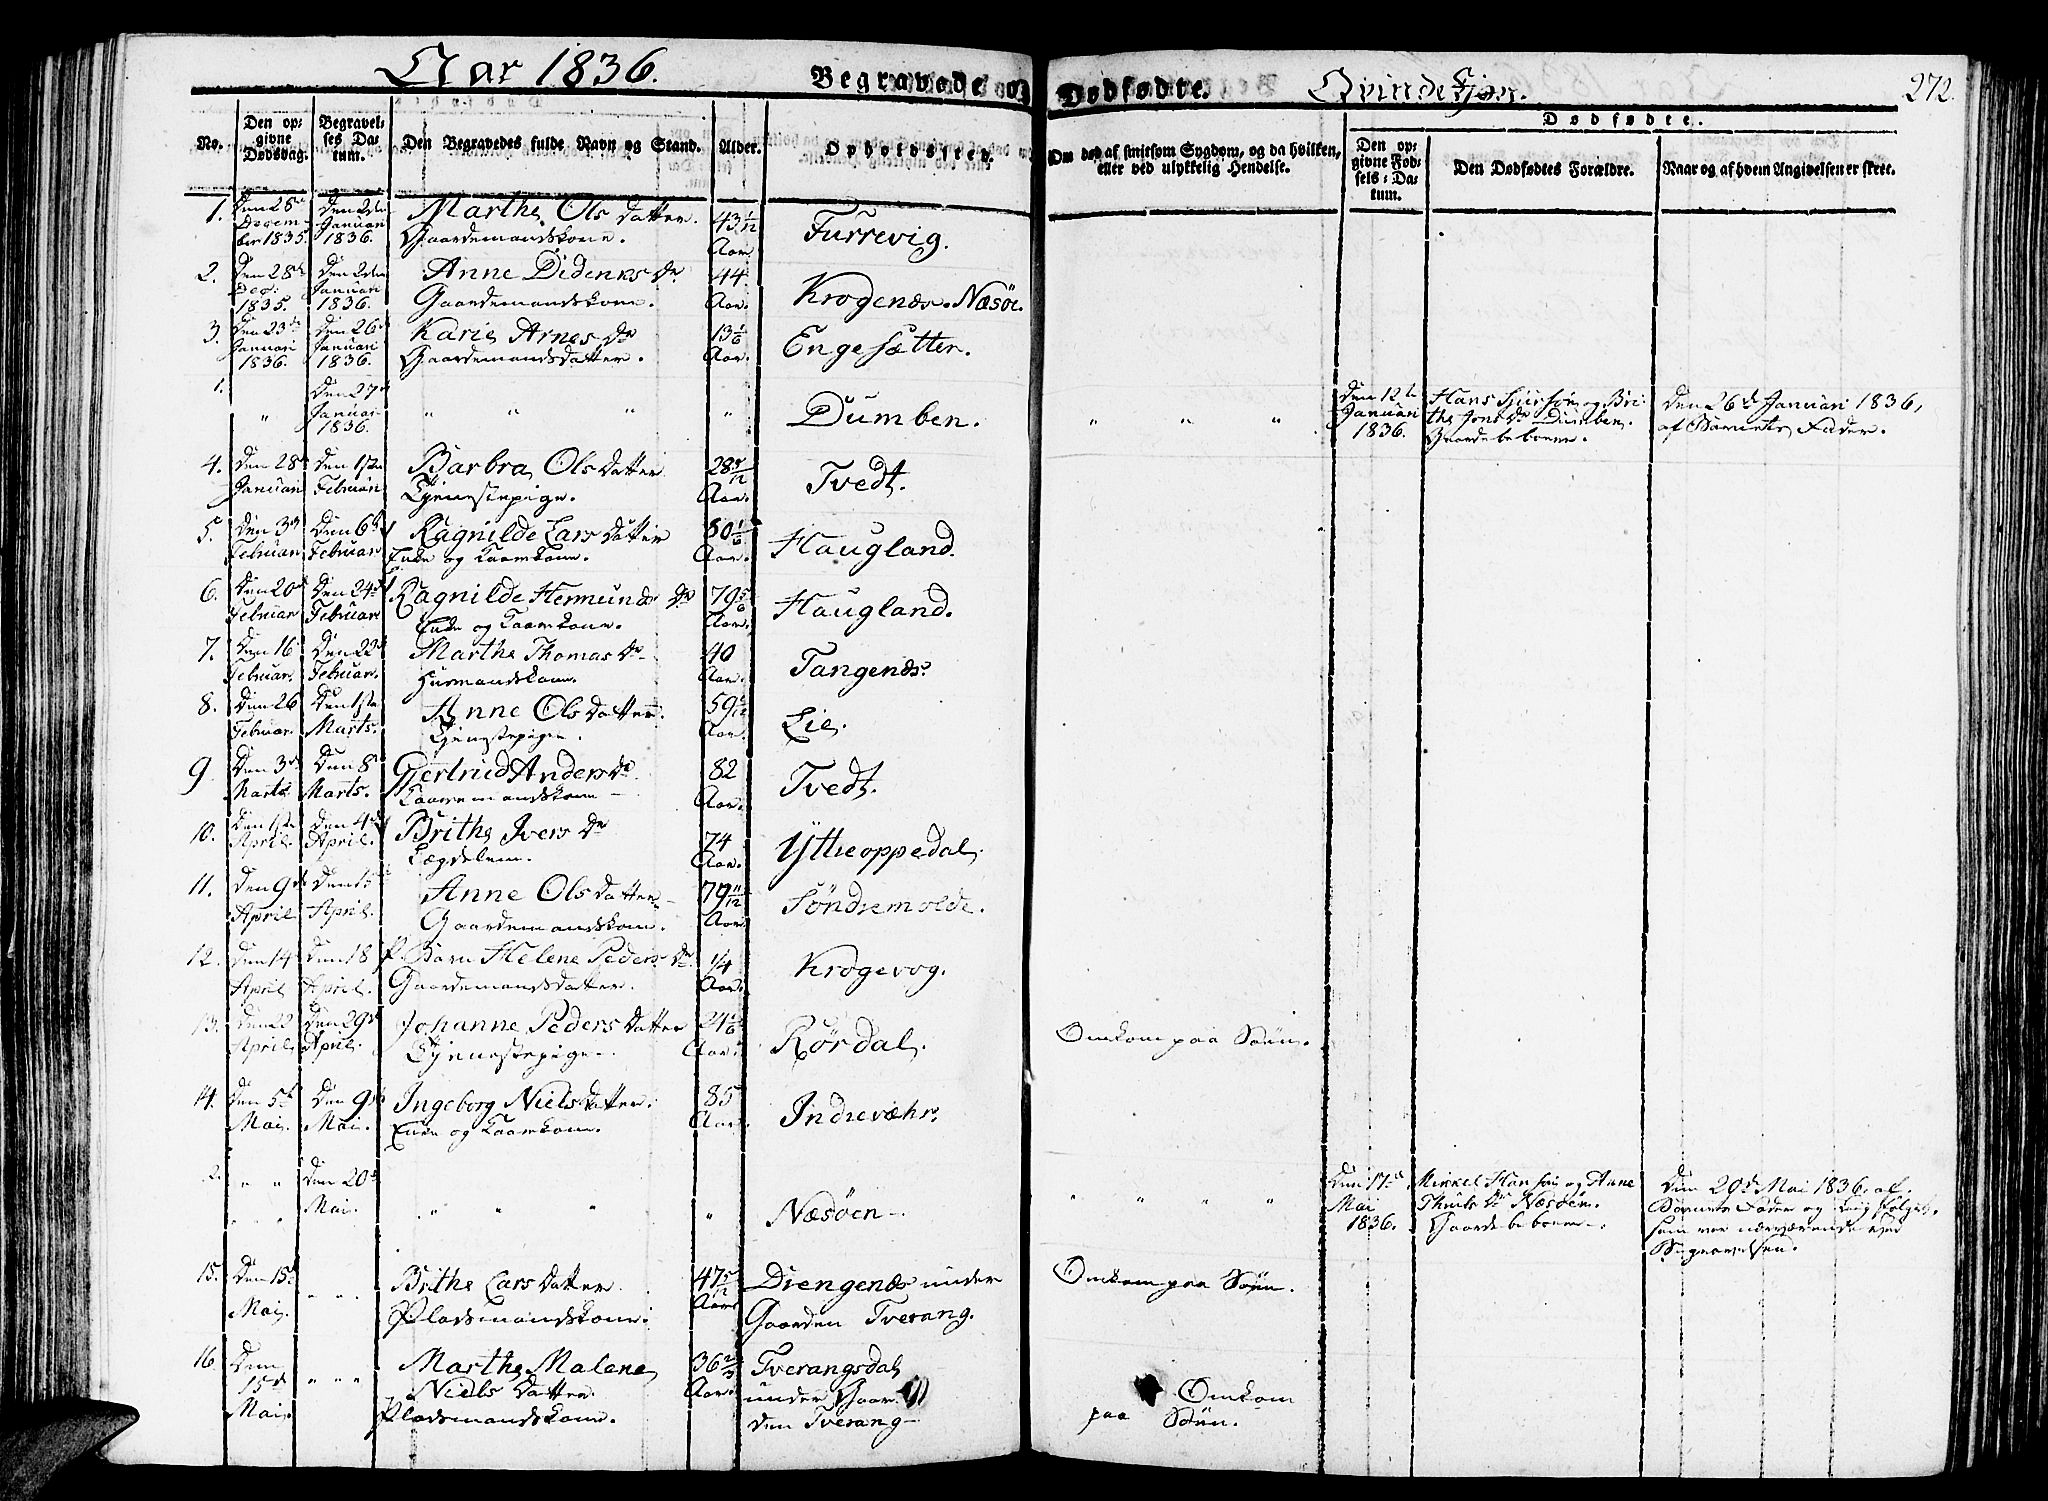 Aar 1836.
Begravede og Dødfødte.
Qvindekjøn.
272.
No.
Den op-
givne
Dødsdag.
Begravel-
ses Da-
tum.
Den Begravedes fulde Navn og Stand.
Alder.
Opholdssted.
Om død af smitsom Sygdom, og da hvilken,
eller ved ulykkelig Hendelse.
Dødfødte.
Den op-
givne Fød-
sels-Da-
tum.
Den Dødfødtes Forældre.
Naar og af hvem Angivelsen er skeet.
1. Den 28de Decem-ber 1835. Den 2den Januari 1836. Marthe Ols Datter. Gaardemandskone. 43 1/12 Aar Furrevig.
2. Den 28de Dec: 1835. Den 2den Januari 1836. Anne Didriks Dr Gaardemandskone. 44 Aar. Krogenæs. Næsöe.
3. Den 23de Januari 1836. Den 26de Januari 1836. Karie Arnes Dr Gaardemandsdatter. 13 1/6 Aar. Engesætter.
1. " Den 27de Januari 1836. " " " " Dumben. " " " Den 12te Januari 1836. Hans Siursön og Bri-
the Jons Dr Dumben. Gaardebeboere. Den 26de Januari 1836,
af Barnets Fader.
4. Den 28de Januari Den 1ste Februari Barbra Ols Datter Tjenestepige. 28 5/12 Aar. Tvedt.
5. Den 3de Februar Den 6te Februar Ragnilde Lars Datter Enke og Kaarkone. 80 1/6 Aar. Haugland.
6. Den 20de Februar Den 24de Februar Ragnilde Hermunds Dr Enke og Kaarkone. 79 5/6 Aar. Haugland.
7. Den 16 Februar. Den 22de Februar. Marthe Thomas Dr Husmandskone. 40 Aar. Tangenæs.
8. Den 26 Februar. Den 1ste Marts. Anne Ols Datter. Tjenestepige. 59 Aar. Lie.
9 Den 3de Marts Den 8de Marts. Gjertrud Anders Dr Kaaremandskone 82 Aar. Tvedt.
10. Den 1ste April. Den 4de April. Brithe Ivers Dr Lægdslem. 74 Aar. Yttreoppedal.
11. Den 9de April Den 15 April. Anne Ols Datter Gaardemandskone. 79 11/12 Aar Söndremolde.
12. Den 14 April Den 18 April. P. Barn Helene Peders Dr. Gaardemandsdatter. 1/4 Aar. Krogevog.
13. Den 22 April. Den 29de April. Johanne Peders Datter Tjenestepige. 24 Aar. Rördal. Omkom paa Söen.
14. Den 5te Mai. Den 9de Mai. Ingeborg Niels Datter. Enke og Kaarkone. 85 Aar. Indrevæhr.
2. " " Den 20de Mai. " " " " Næsöen. " " " " Den 17de Mai 1836. Mikkel Hansön og Anne
Dr Næsöen. Gaardebeboere. Den 20de Mai 1836, af
Barnets Fader og Liigfölget,
som var nærværende ved
Begravelsen.
15. Den 15de Mai. " " " Brithe Lars Datter Pladsmandskone. 47 5/12 Aar Drengenæs under
Gaarden Tverang. Omkom paa Söen.
16. Den 15de Mai. " " " Marthe Malene
Niels Datter
Pladsmandskone. 36 2/3 Aar. Tverangsdal
under Gaar-
den Tverang Omkom
paa Söen.